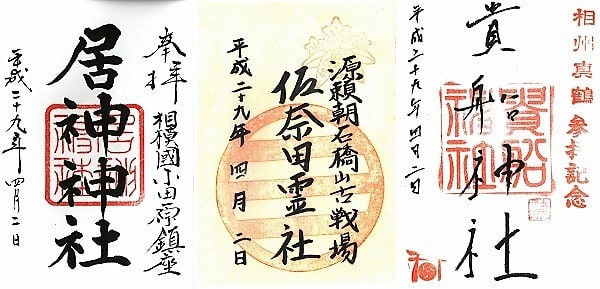 奉拝
相模國小田原鎮座
居神神社
平成二十九年 四月二日
源頼朝石橋山古戦場
佐奈田霊社
平成二十九年 四月二日
相州真鶴参拝記念
貴船神社
平成二十九年四月二日
貴船神社